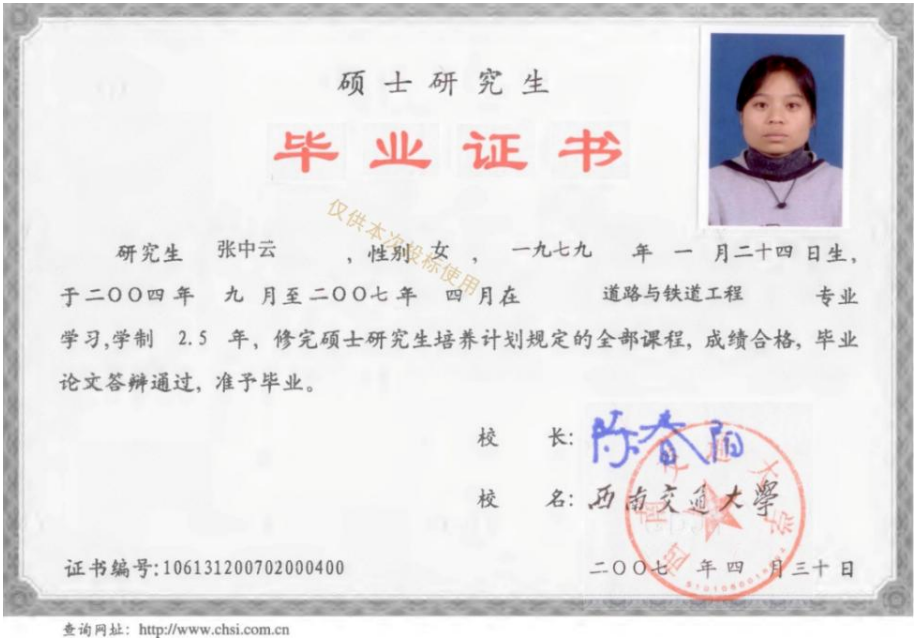 硕士研究生
毕业证书
仅供本次投标使用
研究生 张中云 ，性别 女 ， 一九七九 年 一 月二十四日生，
于二〇〇四年 九 月至二〇〇七年 四 月在 道路与铁道工程 专业
学习,学制 2.5 年，修完硕士研究生培养计划规定的全部课程，成绩合格，毕业
论文答辩通过，准予毕业。
校 长: 陈春阳
校 名: 西南交通大學
西南交通大学
证书编号:106131200702000400
二〇〇七 年 四 月 三十 日
查询网址：http://www.chsi.com.cn